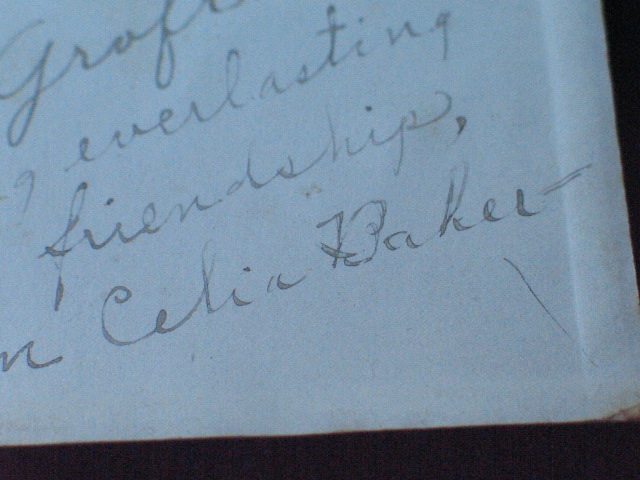 everlasting
friendship,
Celia Baker